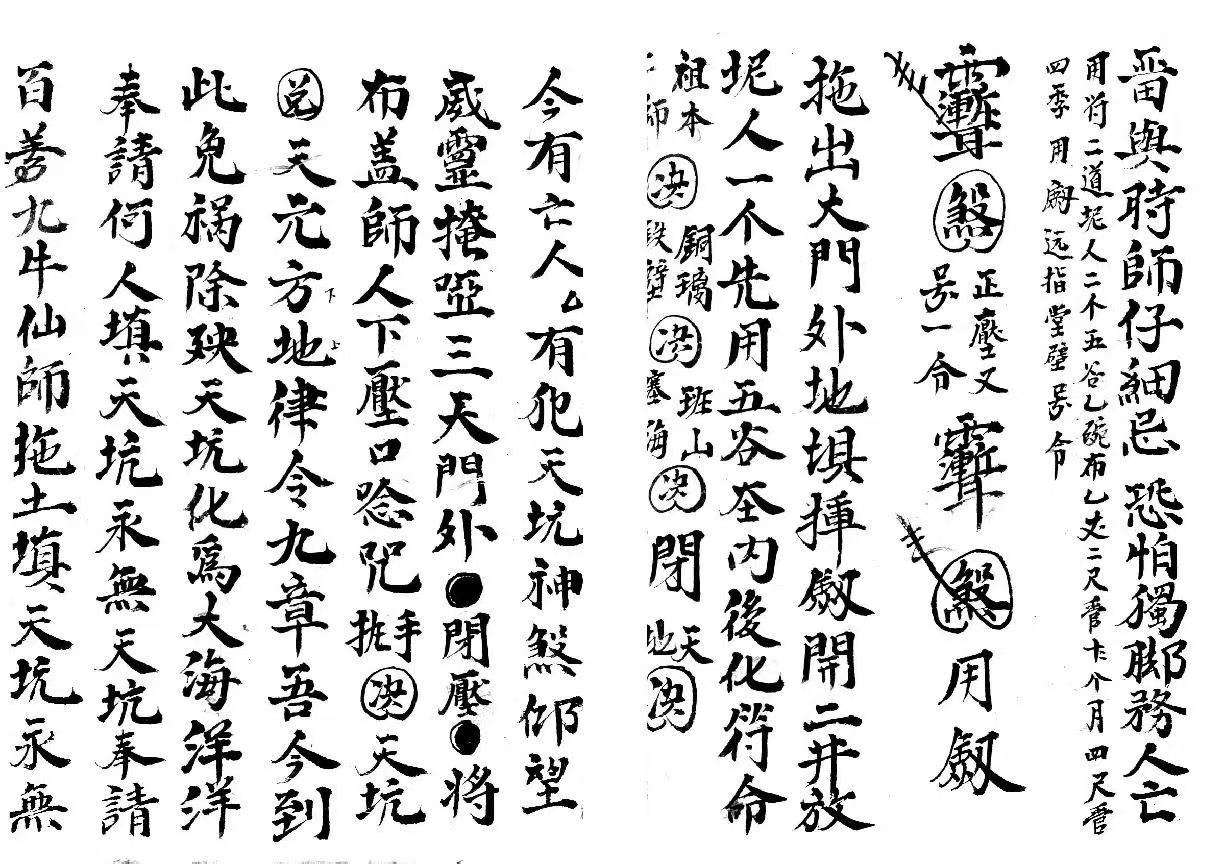 晋與時師仔細忌恐怕獨脚務人亡
用符二道坭人二个五谷乙碗布乙丈二尺 卡个月四尺
四季用劍远指堂壁号令
煞正壓又号一令煞用劍
拖出大門外地埧揮劔開二井放
坭人一个先用五谷在内後化符命
祖本決銅璃決班山決閉天決
師 鉄壁 塞海 地
今有亡人厶有犯天坑神煞仰望
威靈掩啞三天門外●閉壓●将
布盖師人下壓口唸咒 手決天坑
兑天元方地律令九章吾今到
此免祸除殃天坑化爲大海洋洋
奉請何人填天坑永無天坑奉請
百善九牛仙師拖土填天坑永無